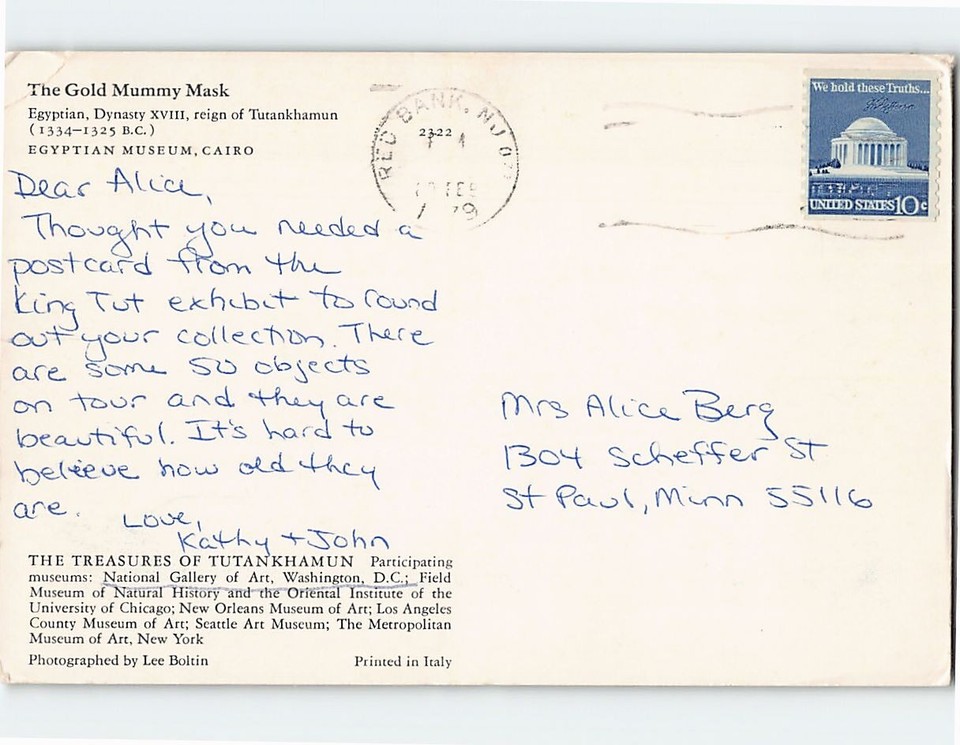 The Gold Mummy Mask
Egyptian, Dynasty XVIII, reign of Tutankhamun
(1334–1325 B.C.)
EGYPTIAN MUSEUM, CAIRO
Dear Alice,
Thought you needed a
postcard from the
King Tut exhibit to round
out your collection. There
are some 50 objects
on tour and they are
beautiful. It's hard to
believe how old they
are.
Love,
Kathy + John
THE TREASURES OF TUTANKHAMUN Participating
museums: National Gallery of Art, Washington, D.C.; Field
Museum of Natural History and the Oriental Institute of the
University of Chicago; New Orleans Museum of Art; Los Angeles
County Museum of Art; Seattle Art Museum; The Metropolitan
Museum of Art, New York
Photographed by Lee Boltin
Printed in Italy
RED BANK, NJ
2322
FEB
We hold these Truths...
UNITED STATES 10c
Mrs Alice Berg
1304 Scheffer St
St Paul, Minn 55116